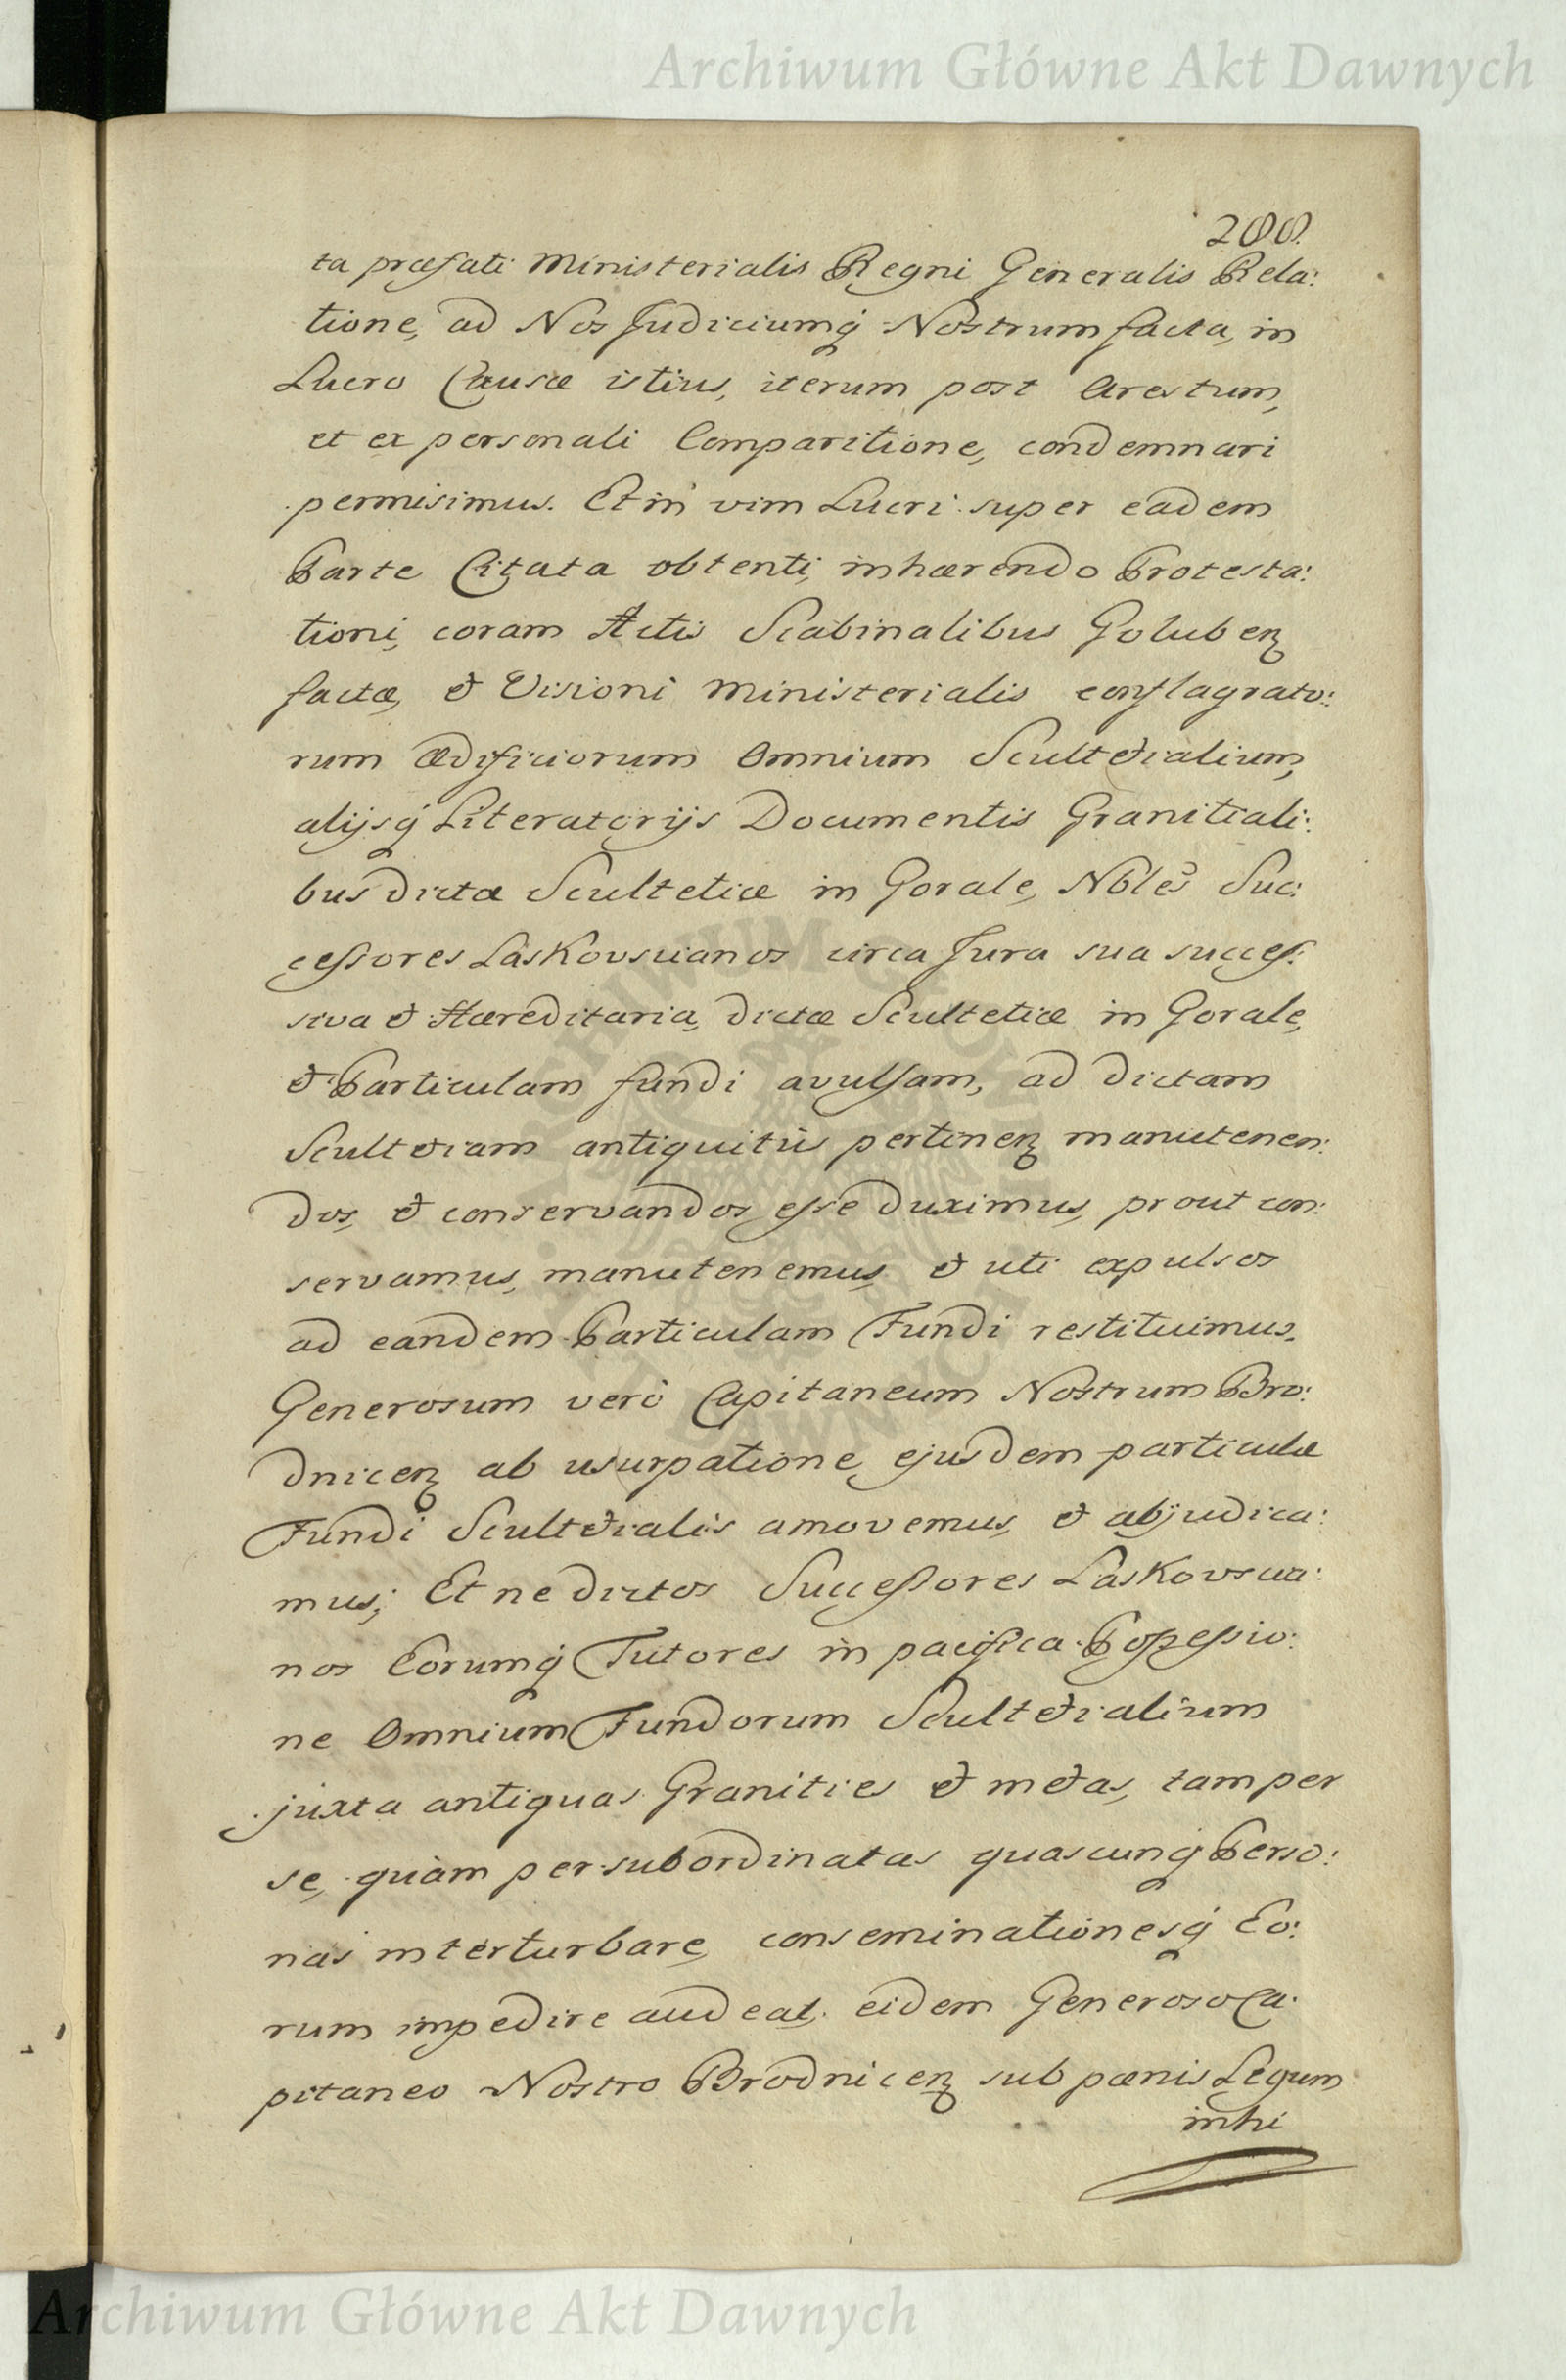 Archiwum Główne Akt Dawnych
288.
ta præfati Ministerialis Regni Generalis Rela:
tione, ad Nos Judiciumq́ Nostrum facta, in
Lucro Causæ istius, iterum post Arestum,
et ex personali Comparitione, condemnari
permisimus. Et in vim Lucri super eadem
Parte Citata obtenti, inhærendo Protesta:
tioni, coram Actis Scabinalibus Goluben̄
factæ, et Visioni Ministerialis conflagrato:
rum Ædificiorum Omnium Scultetialium,
alijsq́ Literatorijs Documentis Granitiali:
bus dictæ Scultetiæ in Gorale, Nbles Suc:
cessores Laskovscianos circa Jura sua succes:
siva et Hæreditaria, dictæ Scultetiæ in Gorale,
et Particulam fundi avulsam, ad dictam
Scultetiam antiquitùs pertinen̄ manutenen:
dos, et conservandos esse duximus, prout con:
servamus, manutenemus, et uti expulsos
ad eandem Particulam Fundi restituimus.
Generosum verò Capitaneum Nostrum Bro:
dnicen̄ ab usurpatione ejusdem particulæ
Fundi Scultetialis amovemus, et abjudica:
mus; Et ne dictos Successores Laskovscia:
nos Eorumq́ Tutores in pacifica Possessio:
ne Omnium Fundorum Scultetialium
juxta antiquas Granities et metas, tam per
se, quàm per subordinatas quascunq́ Perso:
nas interturbare, conseminationesq́ Eo:
rum impedire audeat, eidem Generoso Ca:
pitaneo Nostro Brodnicen̄ sub pænis Legum
inhi
Archiwum Główne Akt Dawnych